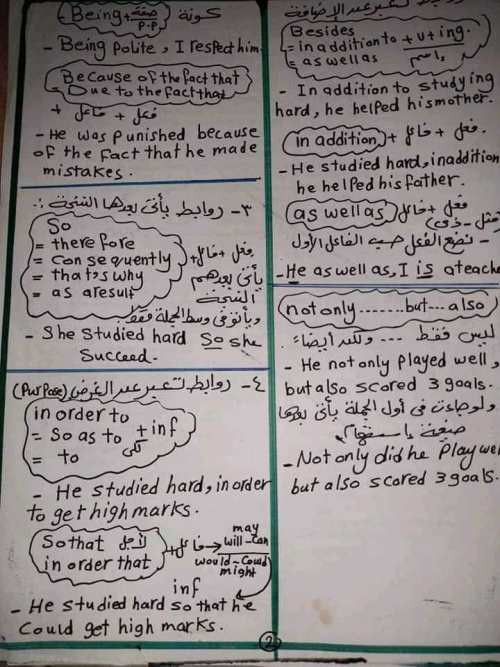 كونة صفة Being + P.P
- Being polite, I respect him.
Because of the fact that
= Due to the fact that
+ فاعل + فعل
- He was punished because
of the fact that he made
mistakes.
٣- روابط يأتى بعدها النتيجة :
So
= therefore
= consequently
= that's why
= as aresult
+ فاعل + فعل
يأتى بعدهم
النتيجة
ويأتوا فى وسط الجملة فقط
- She studied hard So she
Succeed.
٤- روابط تعبر عن الغرض (Purpose)
in order to
= So as to + inf
= to لكى
- He studied hard, in order
to get high marks.
So that لأجل
in order that
+ فاعل + may
will - can
would - could
might
inf
- He studied hard so that he
Could get high marks.
روابط تعبر عن الإضافة
Besides
= in addition to + v + ing.
= as well as اسم
- In addition to studying
hard, he helped his mother.
in addition + فاعل + فعل.
- He studied hard, in addition
he helped his father.
as well as فاعل + فعل
- نضع الفعل حسب الفاعل الأول
- He as well as, I is a teache
not only ........ but ... also
ليس فقط ... ولكن أيضاً.
- He not only played well,
but also scored 3 goals.
ولو جاءت فى أول الجملة يأتى بعدها
صيغة استفهام
- Not only did he play wel
but also scored 3 goals.
2